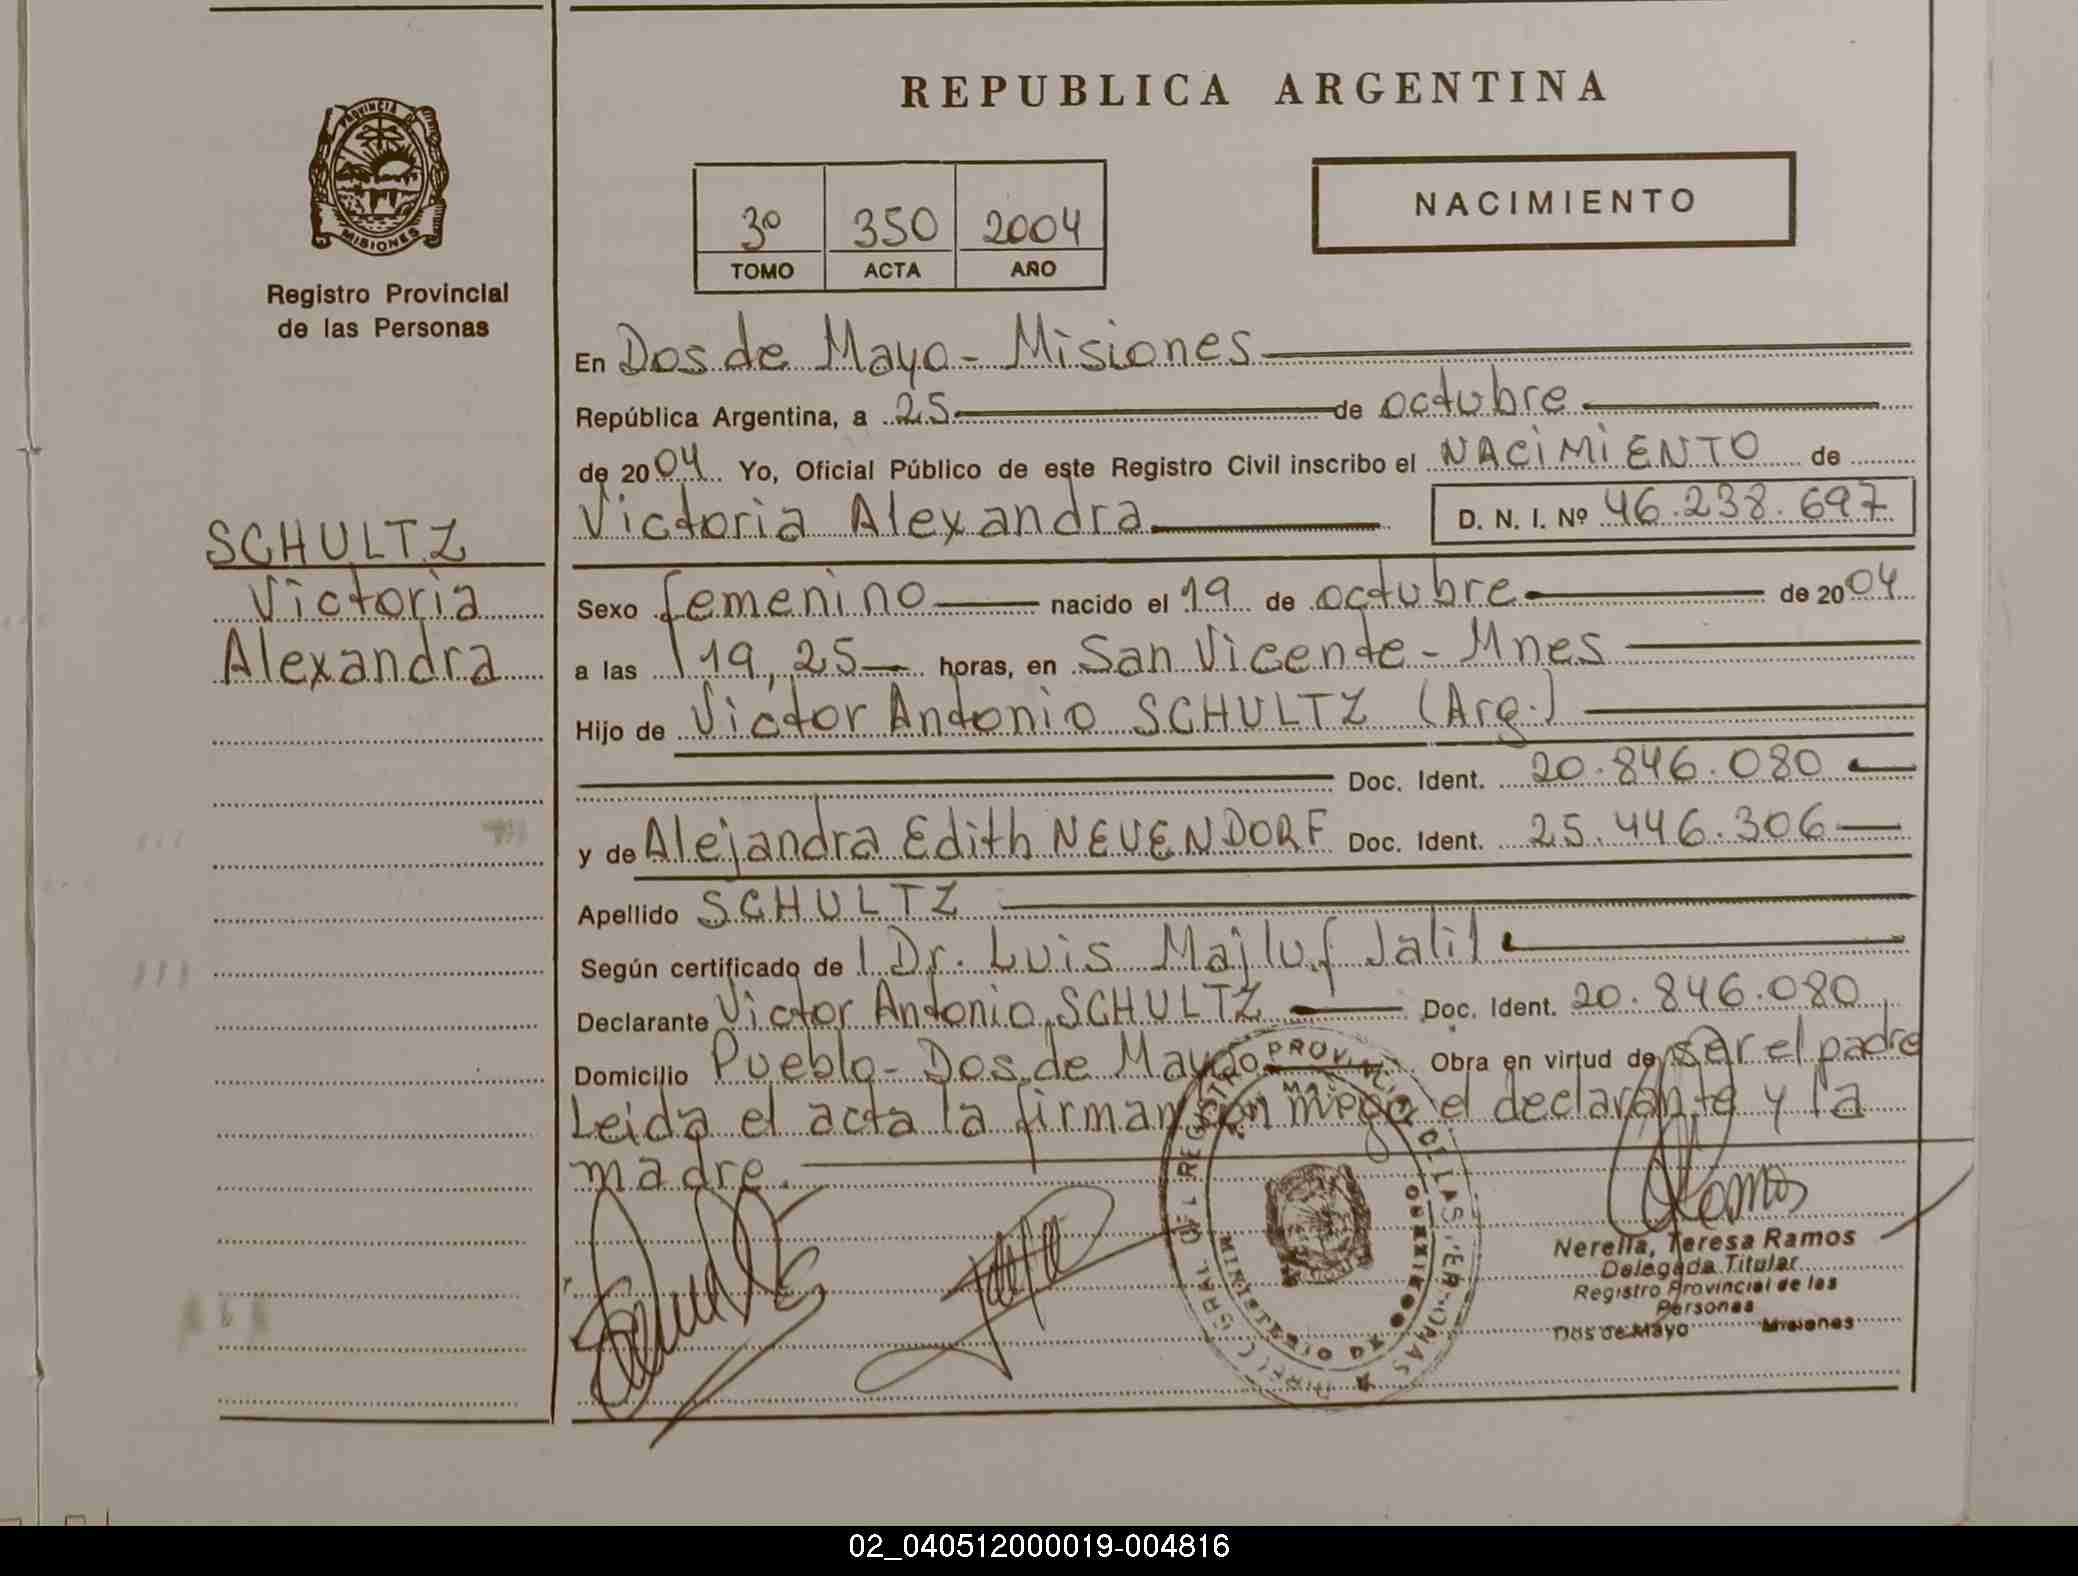 REPUBLICA ARGENTINA
PROVINCIA DE
MISIONES
Registro Provincial
de las Personas
NACIMIENTO
3º 350 2004
TOMO ACTA AÑO
En Dos de Mayo - Misiones
República Argentina, a 25 de octubre
de 2004 Yo, Oficial Público de este Registro Civil inscribo el NACIMIENTO de
Victoria Alexandra D. N. I. Nº 46.238.697
SCHULTZ
Victoria
Alexandra
Sexo femenino nacido el 19 de octubre de 2004
a las 19,25 horas, en San Vicente - Mnes
Hijo de Victor Antonio SCHULTZ (Arg.)
Doc. Ident. 20.846.080
y de Alejandra Edith NEUENDORF Doc. Ident. 25.446.306
Apellido SCHULTZ
Según certificado de Dr. Luis Majluf Jalil
Declarante Victor Antonio SCHULTZ Doc. Ident. 20.846.080
Domicilio Pueblo - Dos de Mayo Obra en virtud de ser el padre
Leida el acta la firman con migo el declarante y la
madre.
Nerella, Teresa Ramos
Delegada Titular
Registro Provincial de las
Personas
Dos de Mayo Misiones
02_040512000019-004816